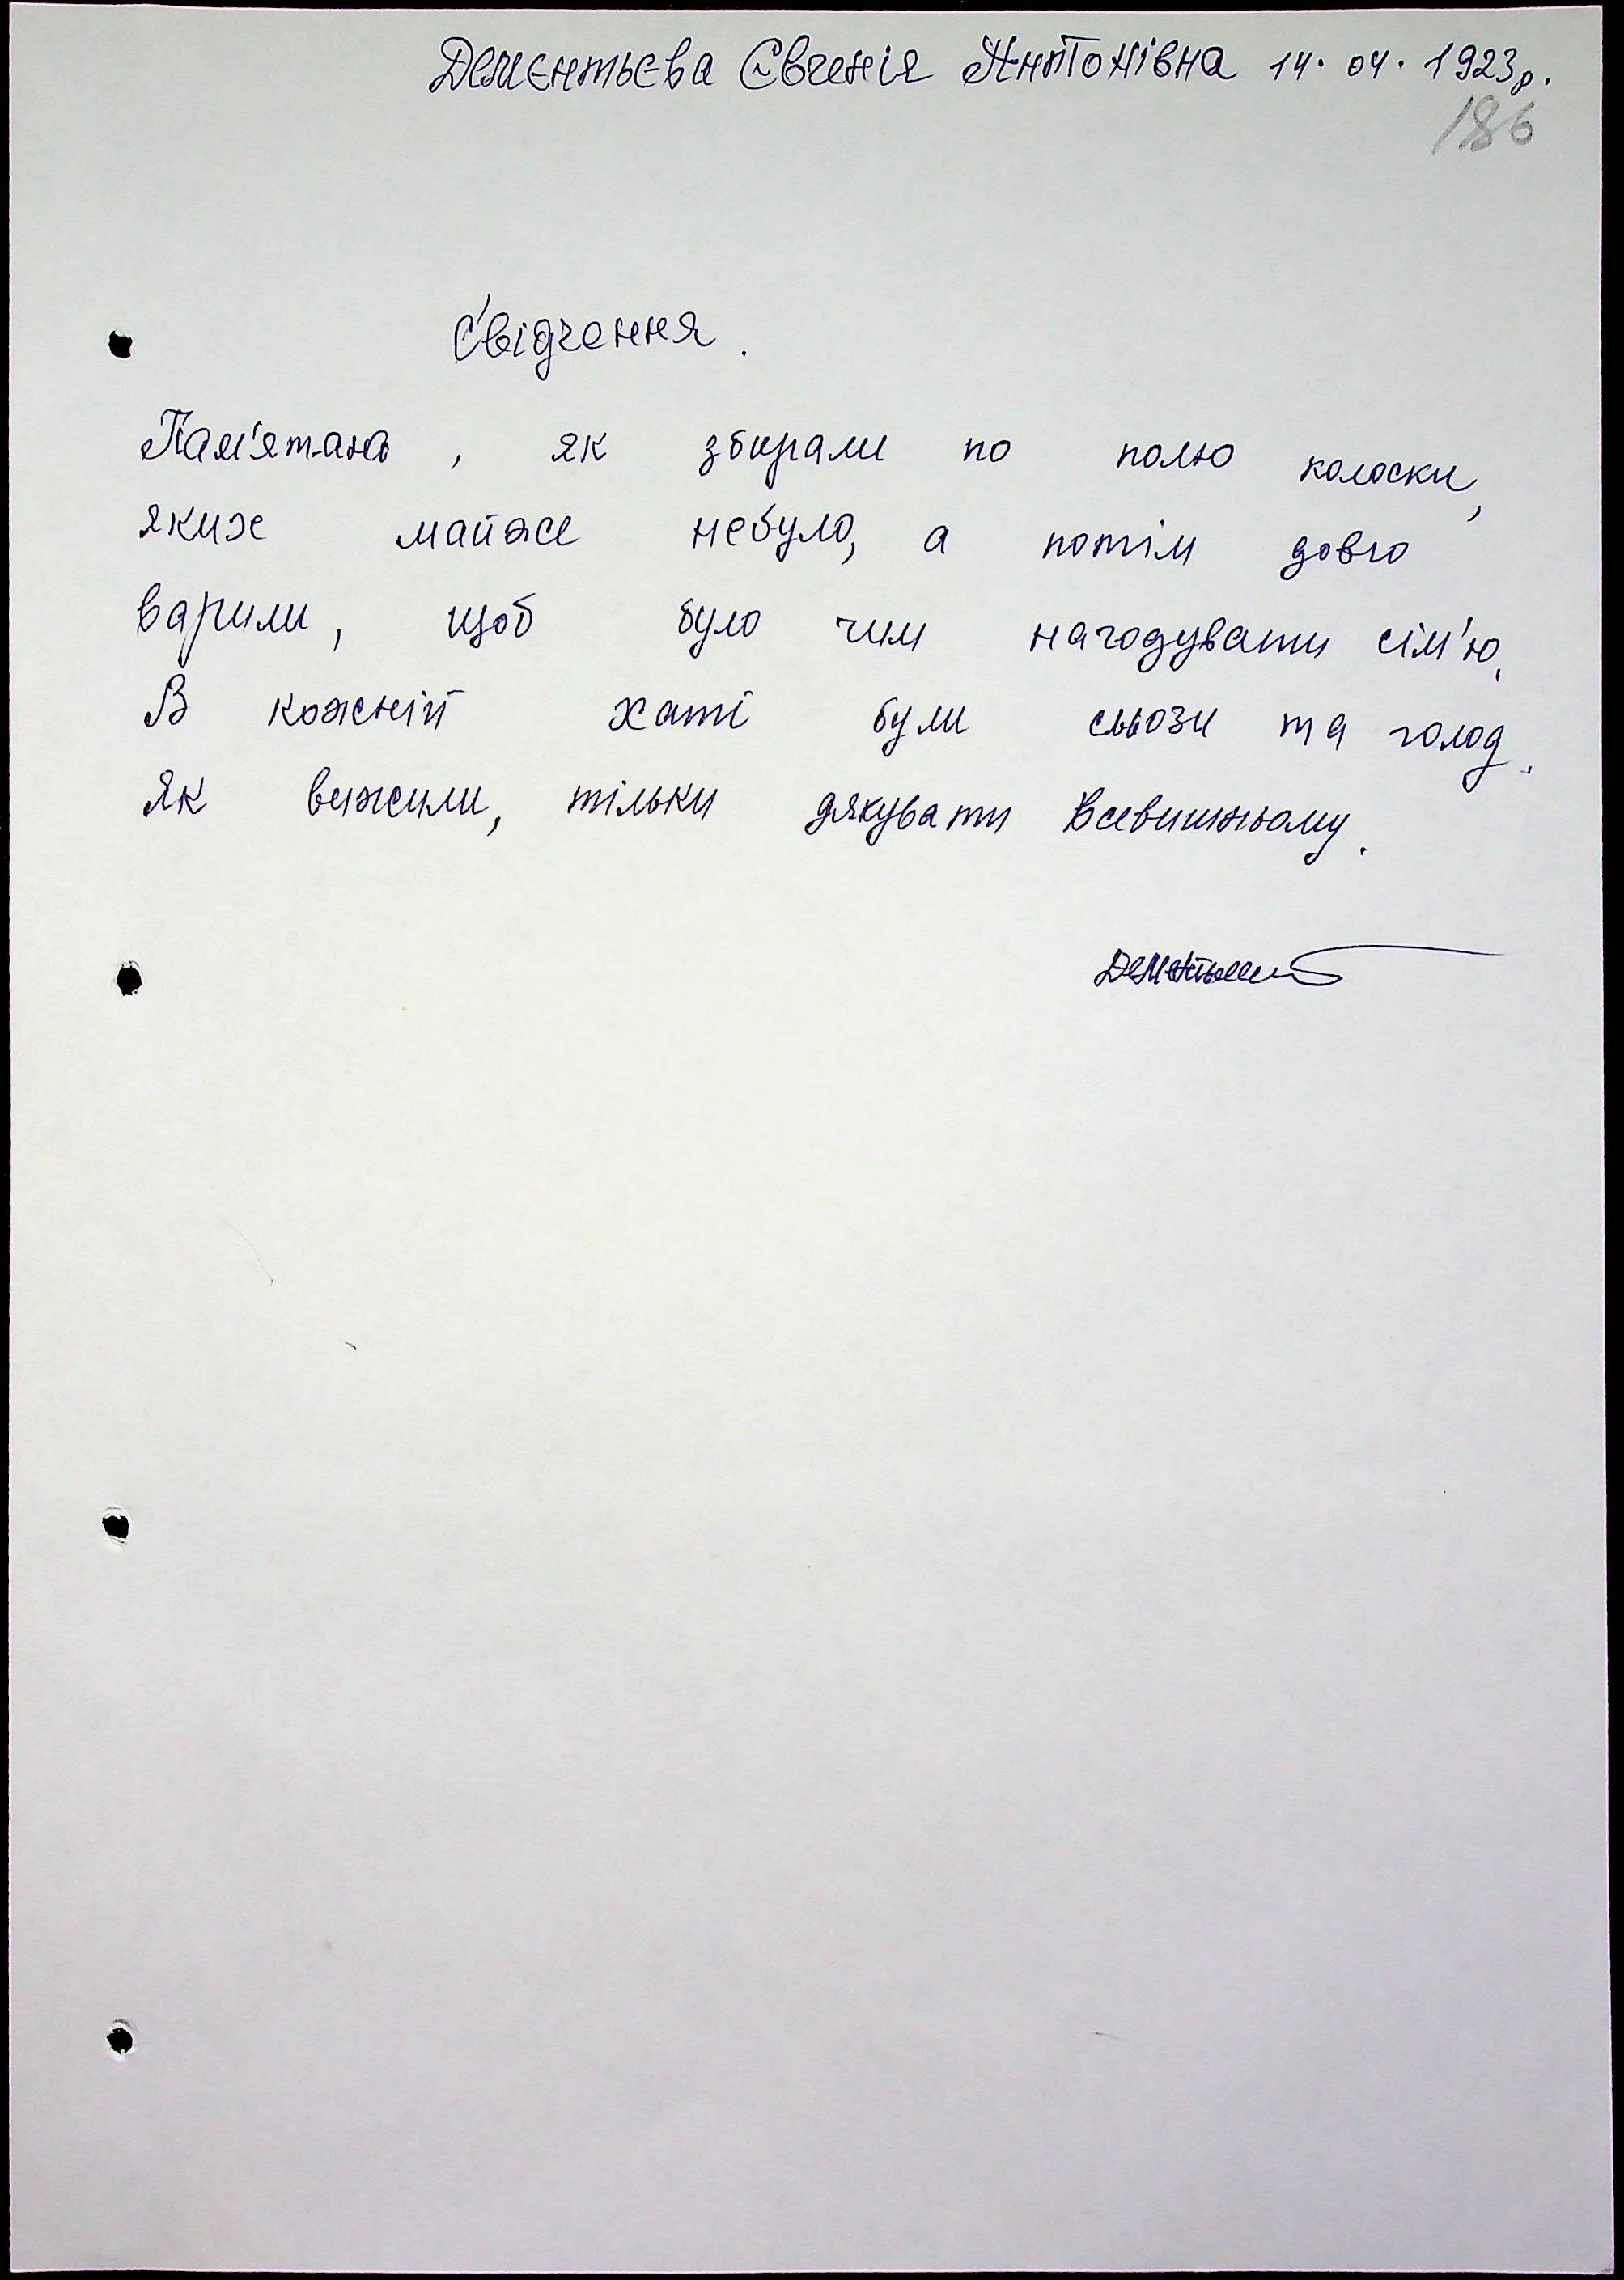 Дементьєва Євгенія Антонівна 14.04.1923р.
186
Свідчення.
Пам'ятаю, як збирали по полю колоски,
яких майже небуло, а потім довго
варили, щоб було чим нагодувати сім'ю.
В кожній хаті були сльози та голод.
Як вижили, тільки дякувати Всевишньому.